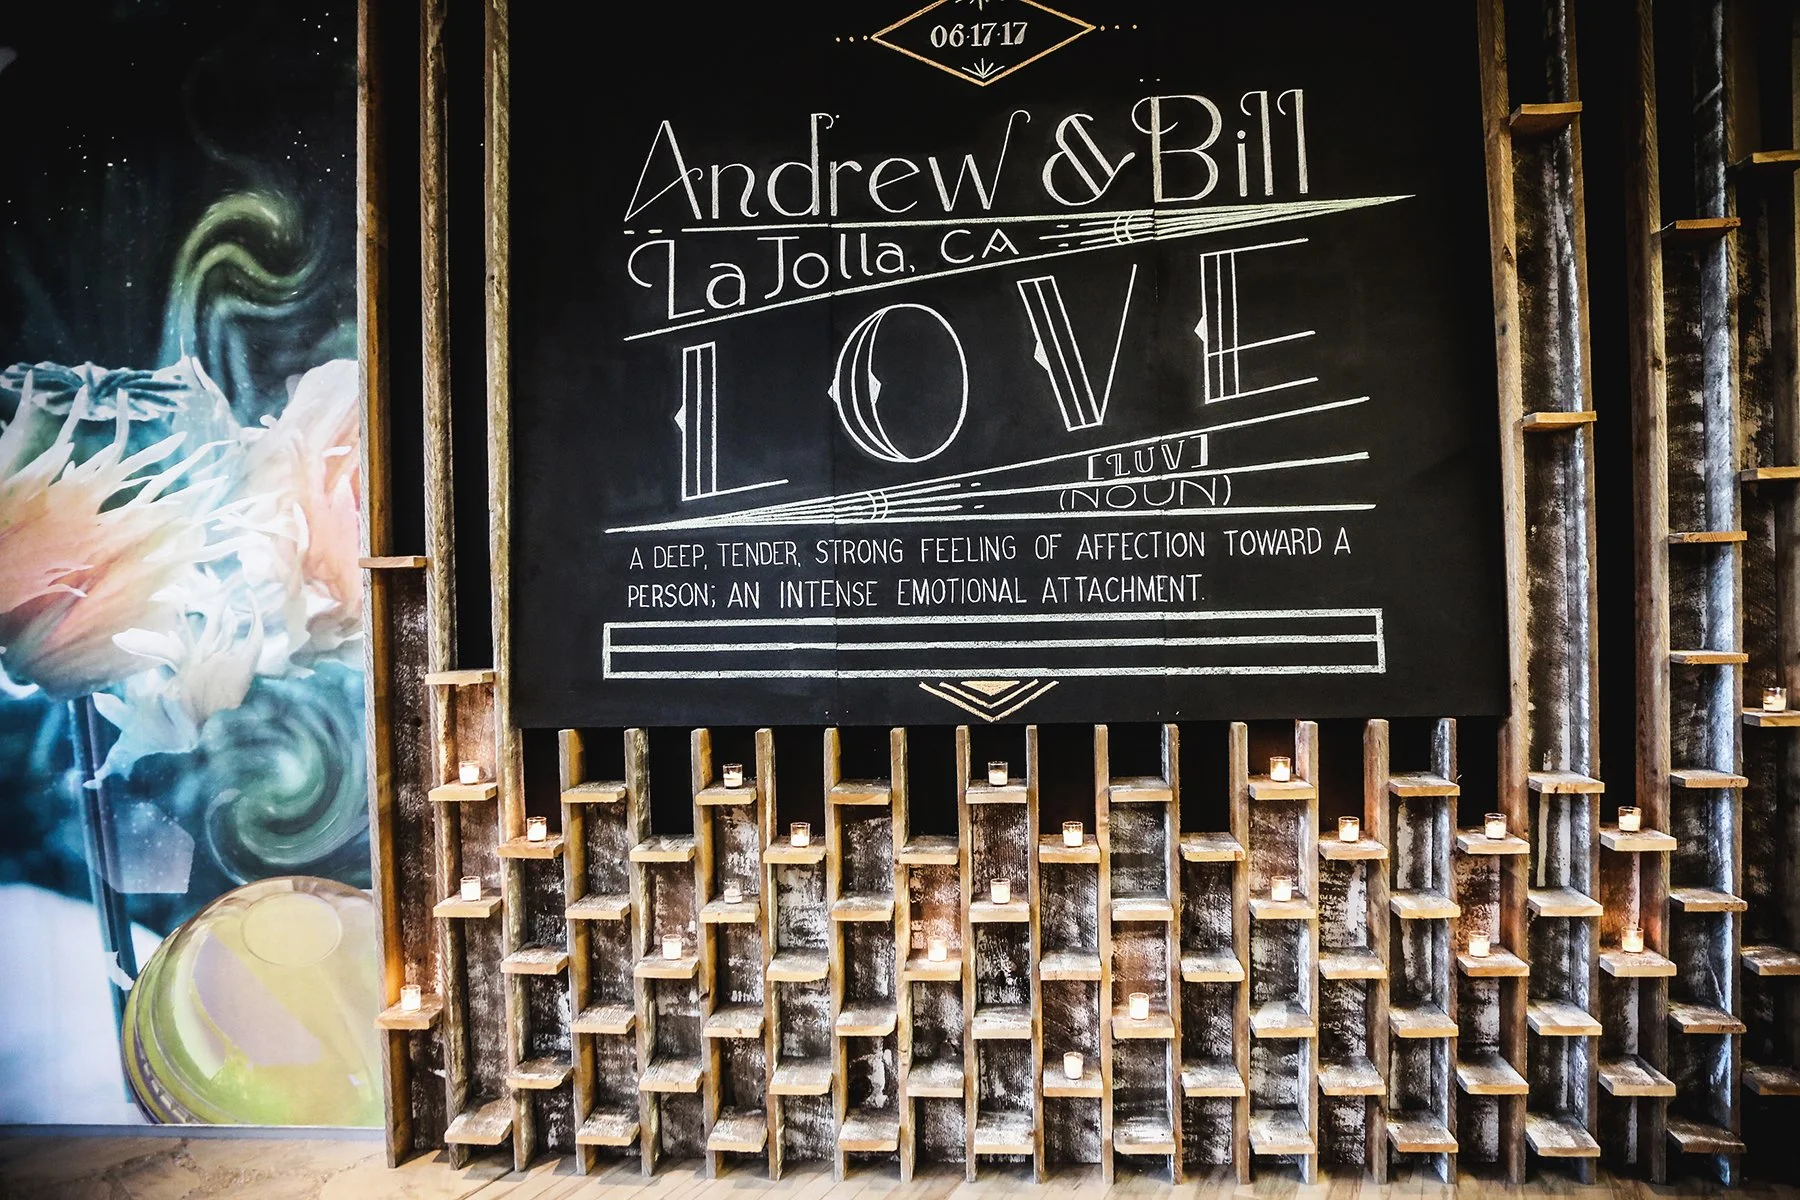 06·17·17
Andrew & Bill
La Jolla, CA
LOVE
[LUV]
(NOUN)
A DEEP, TENDER, STRONG FEELING OF AFFECTION TOWARD A
PERSON; AN INTENSE EMOTIONAL ATTACHMENT.